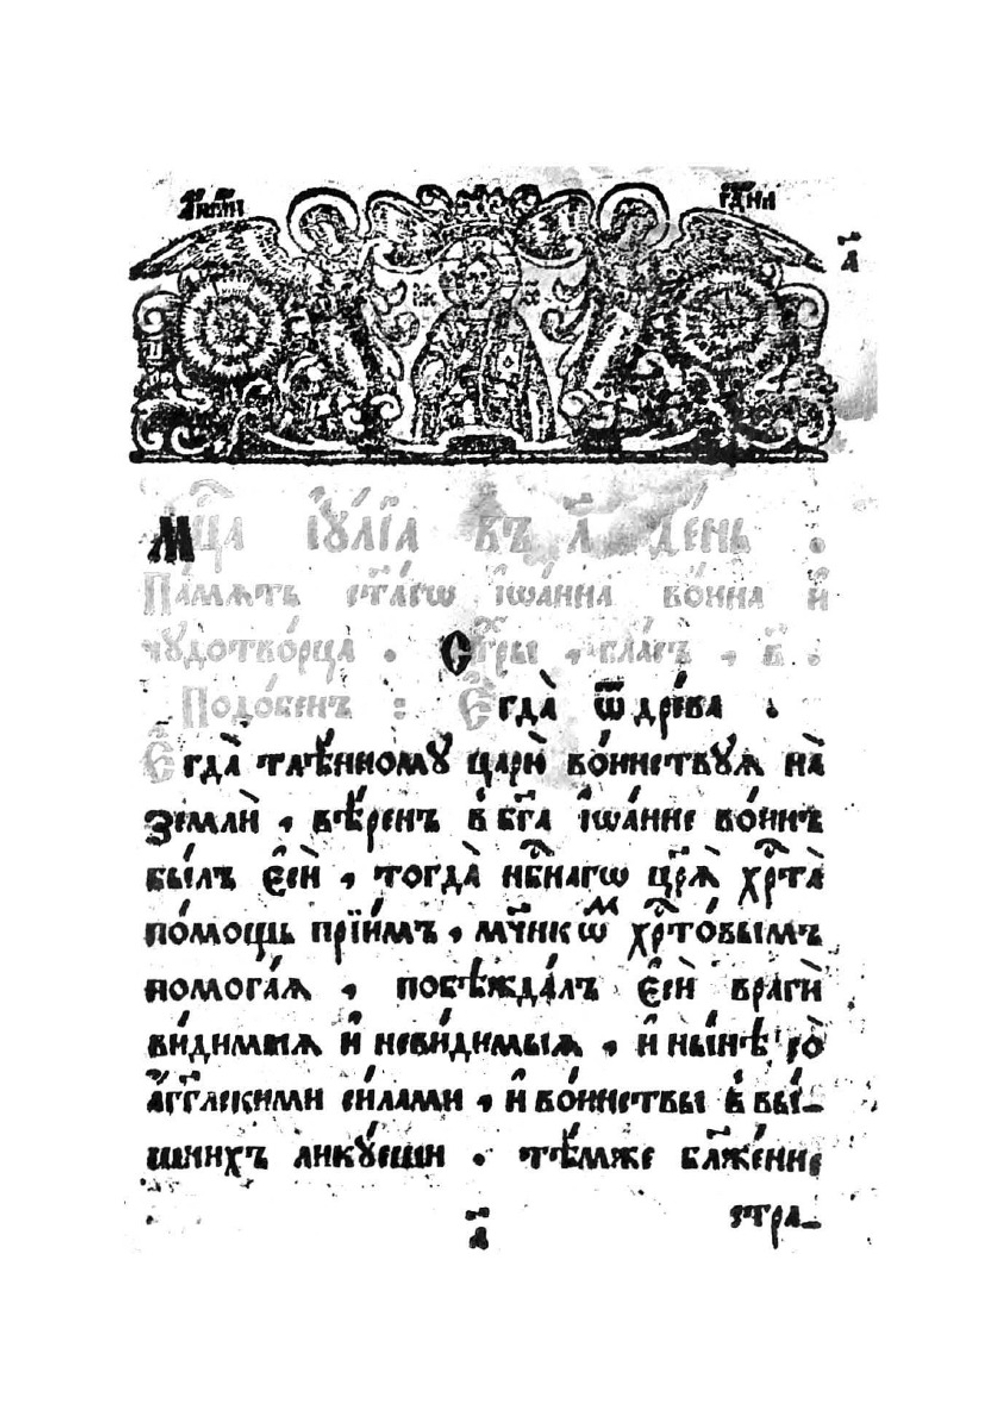 а҃
Мц҃а і҆у́лїа въ л҃ де́нь .
Па́мѧть ст҃а́гѡ і҆ѡа́нна во́ина и҆
чудотво́рца . Стⷯи́ры , гла́съ , в҃ .
Подо́бенъ : Е҆гда̀ ѿ дре́ва .
Е҆гда̀ тлѣ́нному царю̀ во́инствуѧ на̀
землѝ , вѣ́ренъ в бг҃а і҆ѡа́нне во́инъ
бы́лъ є҆сѝ , тогда̀ нб҃нагѡ цр҃ѧ̀ хрⷭ҇та̀
по́мощь прїи́мъ , мч҃нкѡⷨ хрⷭ҇то́вымъ
помога́ѧ , побѣжда́лъ є҆сѝ врагѝ
ви́димыѧ и҆ неви́димыѧ , и҆ ны́нѣ со̀
а҆́гг҃лскими си́лами , и҆ во́инствы в вы́_
шнихъ лику́еши . тѣ́мже бл҃же́нне
а҃
стра_